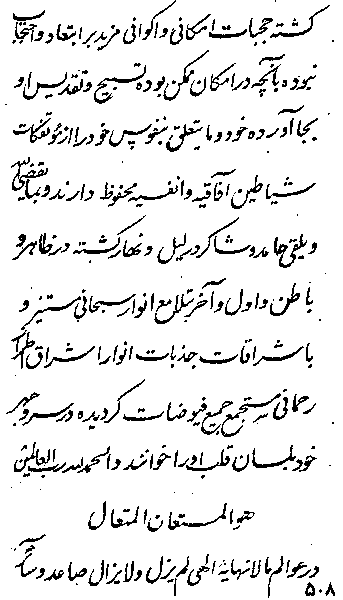 کشته حجبات امکانی و اکوانی مزید بر ابتعاد و احتجاب
نبوده بآنچه در امکان ممکن بوده تسبیح و تقدیس او
بجا آورده خود و ما یتعلق بنفوس خود را از مؤتفکات
شیاطین آفاقیه و انفسیه محفوظ دارند و بما یقضی
و یلقی حامد و شاکر در لیل و نهار کشته در ظاهر و
باطن و اول و آخر بتلامع انوار سبحانی مستنیر و
باشراقات جذبات انوار اشراق
رحمانی مستجمع جمیع فیوضات کردیده در سر و جهر
خود بلسان قلب او را خوانند و الحمد لله رب العالمین
هو المستعان المتعال
در عوالم مالانهایهٔ الهی لم یزل و لا یزال صاعد و سائر
۵۰۸